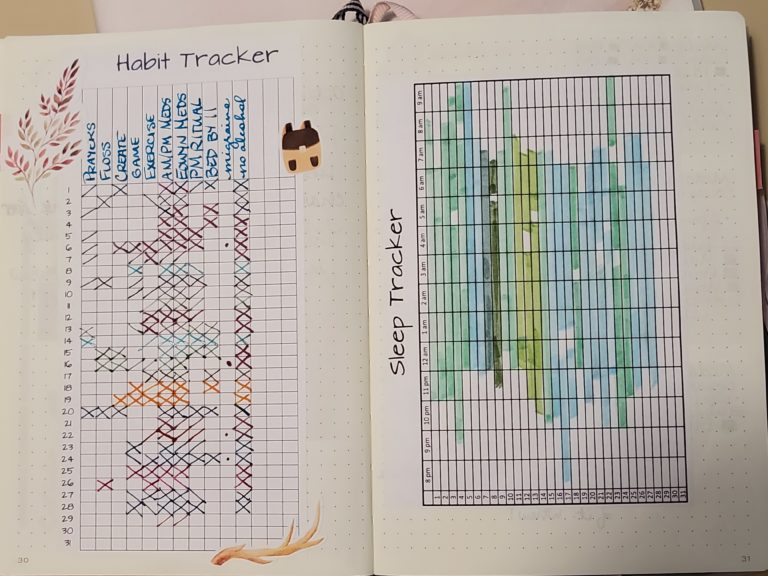 Habit Tracker
PRAYERS
FLOSS
CREATE
GAME
EXERCISE
AM/PM MEDS
EOWN MEDS
PM RITUAL
BED BY 11
migraine
no alcohol
1
2
3
4
5
6
7
8
9
10
11
12
13
14
15
16
17
18
19
20
21
22
23
24
25
26
27
28
29
30
31
30
Sleep Tracker
9 am
8 am
7 am
6 am
5 am
4 am
3 am
2 am
1 am
12 am
11 pm
10 pm
9 pm
8 pm
1
2
3
4
5
6
7
8
9
10
11
12
13
14
15
16
17
18
19
20
21
22
23
24
25
26
27
28
29
30
31
31